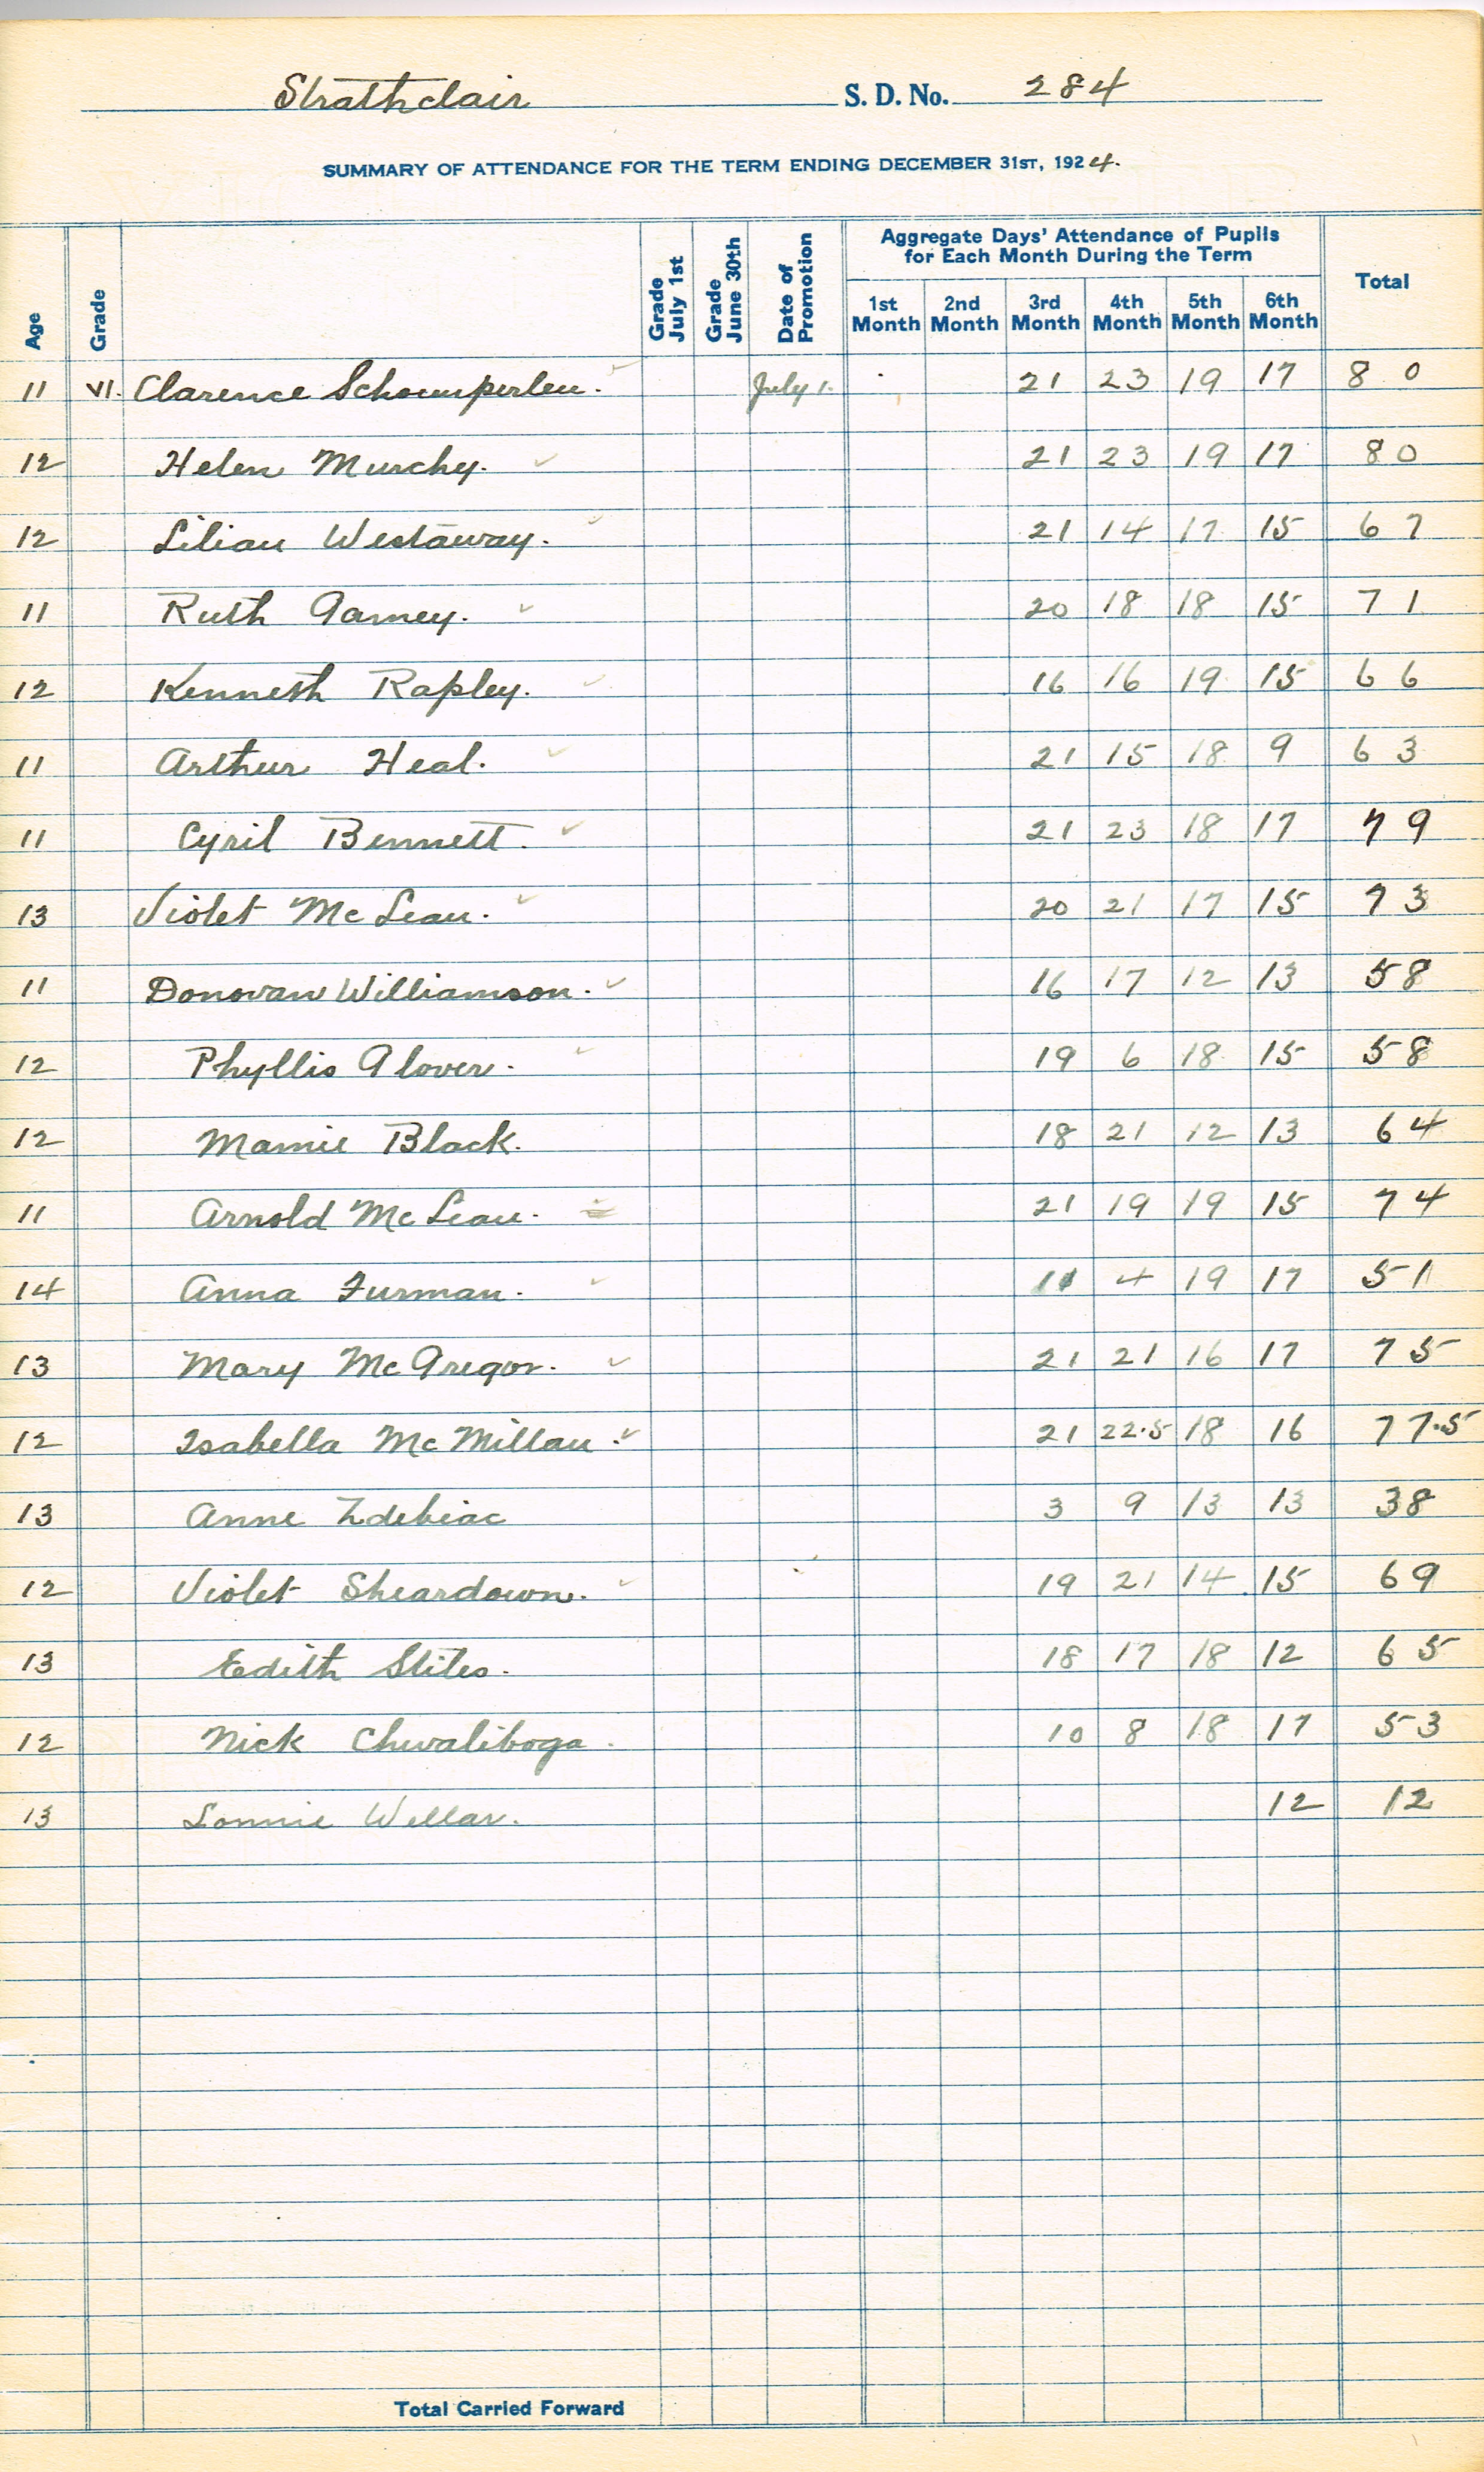 Strathclair S. D. No. 284
SUMMARY OF ATTENDANCE FOR THE TERM ENDING DECEMBER 31ST, 1924.
Age Grade Grade July 1st Grade June 30th Date of Promotion Aggregate Days' Attendance of Pupils for Each Month During the Term Total
1st Month 2nd Month 3rd Month 4th Month 5th Month 6th Month
11 VI. Clarence Schoumperlen. July 1. 21 23 19 17 80
12 Helen Murchy. 21 23 19 17 80
12 Lilian Westaway. 21 14 17 15 67
11 Ruth Gamey. 20 18 18 15 71
12 Kenneth Rapley. 16 16 19 15 66
11 Arthur Heal. 21 15 18 9 63
11 Cyril Bennett. 21 23 18 17 79
13 Violet McLean. 20 21 17 15 73
11 Donovan Williamson. 16 17 12 13 58
12 Phyllis Glover. 19 6 18 15 58
12 Mamie Black. 18 21 12 13 64
11 Arnold McLean. 21 19 19 15 74
14 Anna Furman. 11 4 19 17 51
13 Mary McGregor. 21 21 16 17 75
12 Isabella McMillan. 21 22.5 18 16 77.5
13 Anne Zdebiac 3 9 13 13 38
12 Violet Sheardown. 19 21 14 15 69
13 Edith Stites. 18 17 18 12 65
12 Nick Chwaliboga. 10 8 18 17 53
13 Lonnie Wellar. 12 12
Total Carried Forward